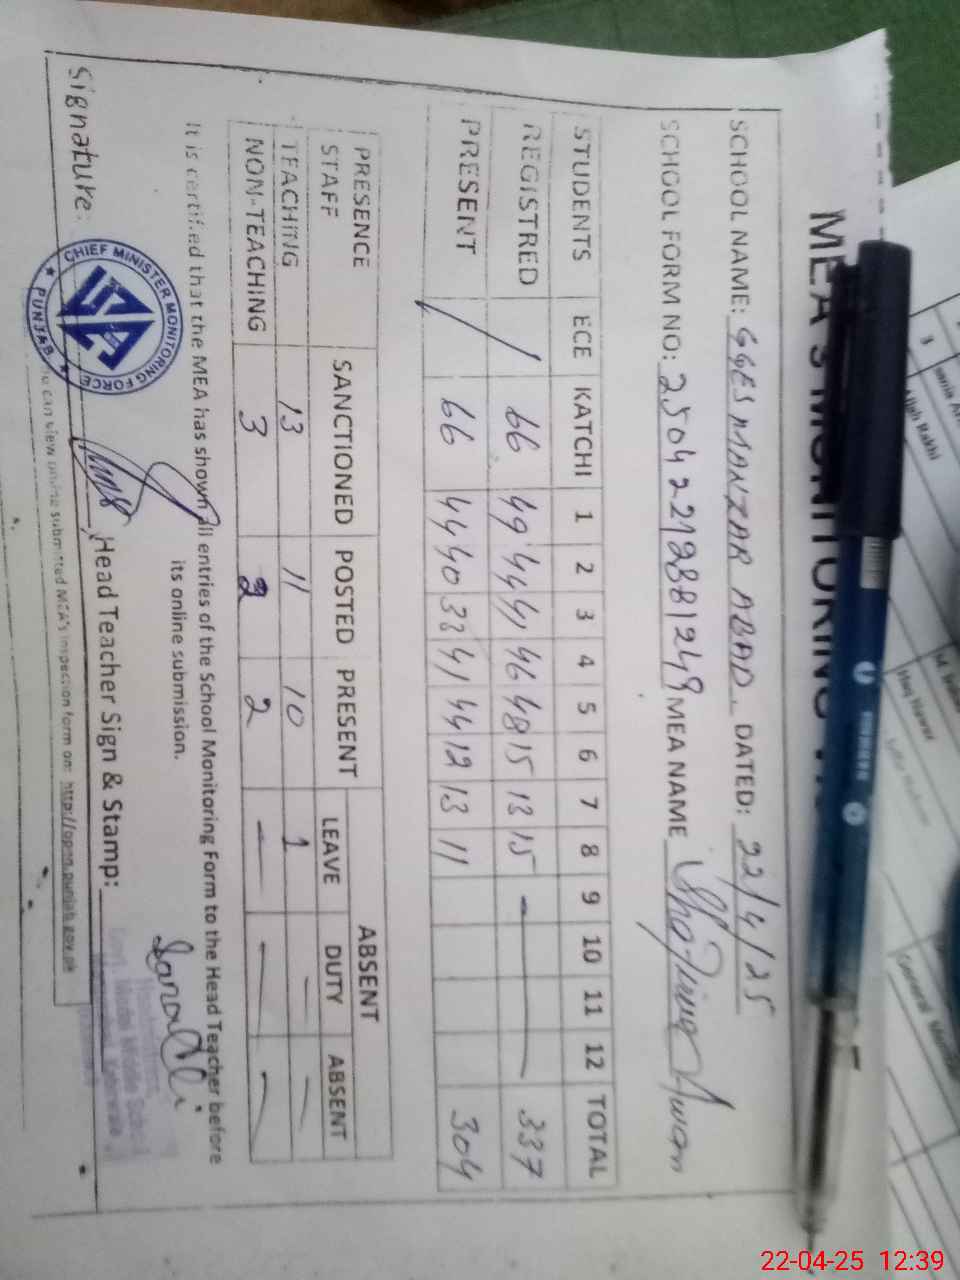 MEA'S MONITORING
SCHOOL NAME: GGES MANZAR ABAD. DATED: 22/4/25
SCHOOL FORM NO: MEA NAME Awan
STUDENTS ECE KATCHI 1 2 3 4 5 6 7 8 9 10 11 12 TOTAL
REGISTRED / 66 49 44 41 46 48 15 13 15 — 337
PRESENT 66 44 40 38 41 44 12 13 11 304
PRESENCE SANCTIONED POSTED PRESENT ABSENT
STAFF LEAVE DUTY ABSENT
TEACHING 13 11 10 1 — —
NON-TEACHING 3 2 2 — — —
It is certified that the MEA has shown all entries of the School Monitoring Form to the Head Teacher before
its online submission.
Signature: Head Teacher Sign & Stamp:
CHIEF MINISTER MONITORING FORCE
★ PUNJAB ★
can view online submitted MEA's inspection form on: http://open.punjab.gov.pk
Headmistress
Govt. Model Middle School
3
Allah Rakhi
General
22-04-25 12:39